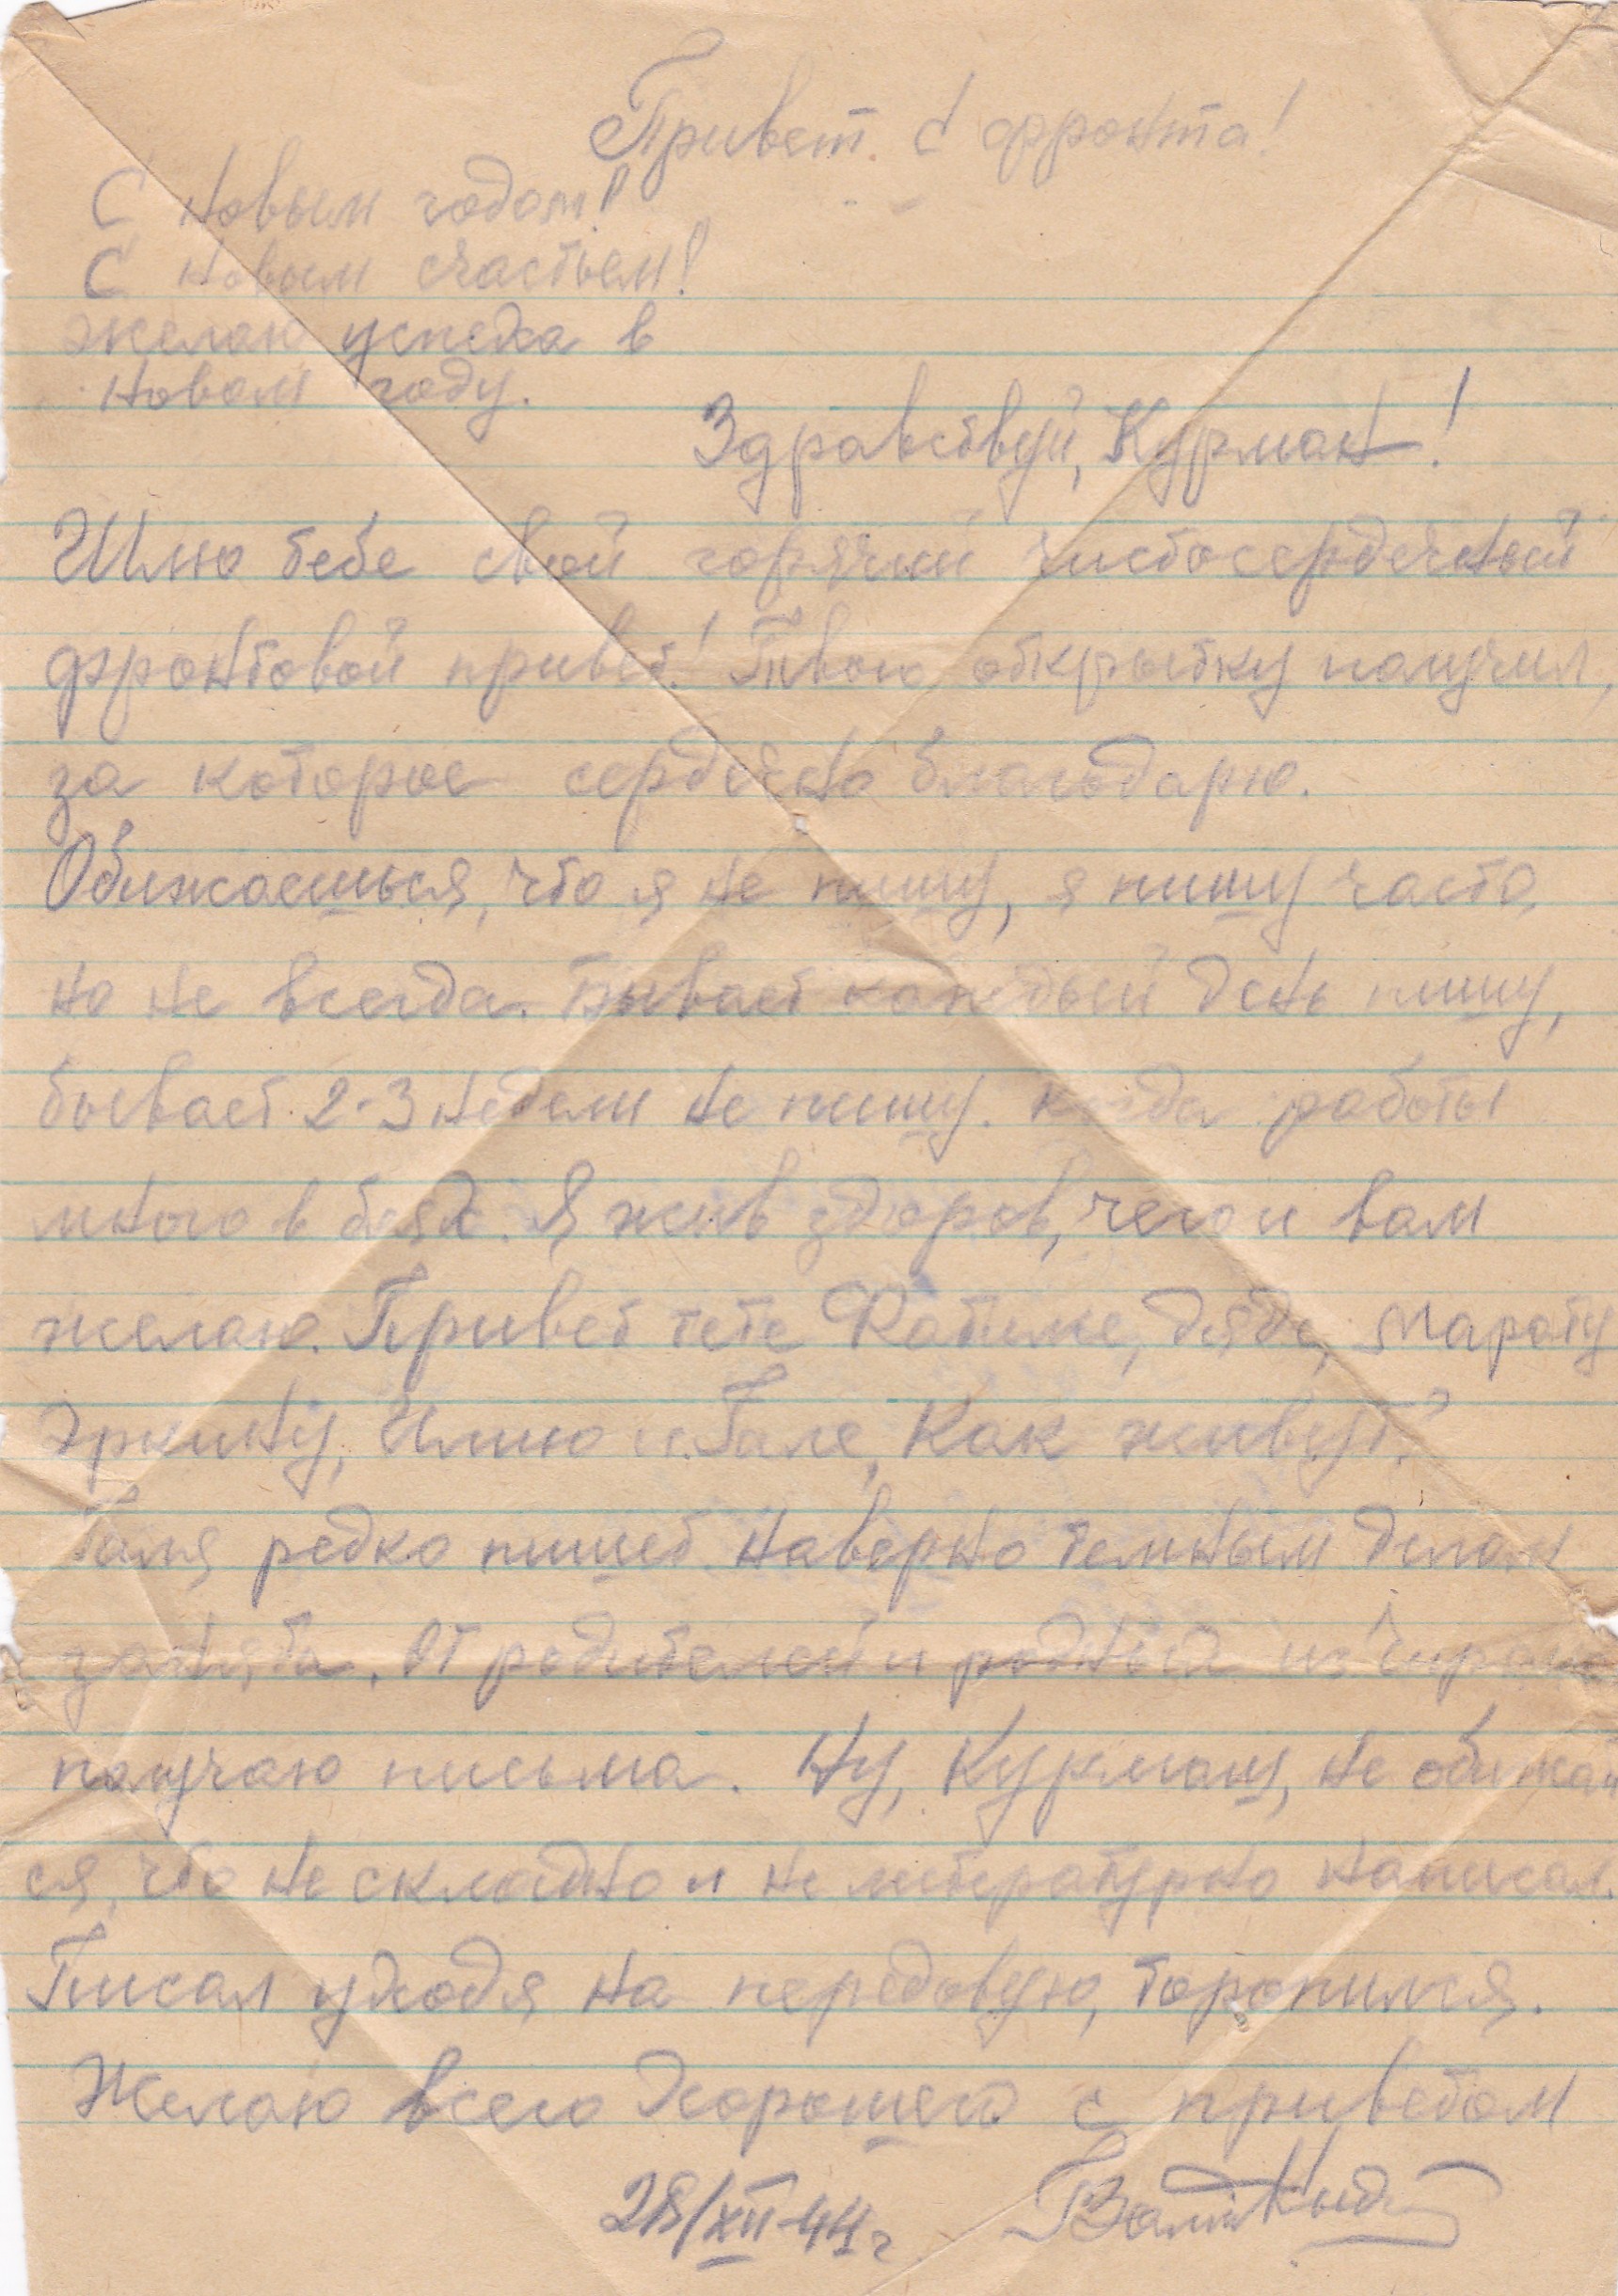 Привет с фронта!
С новым годом!
С новым счастьем!
Желаю успеха в
новом году.
Здравствуй, Курман!
Шлю тебе свой горячий чистосердечный
фронтовой привет! Твою открытку получил,
за которое сердечно благодарю.
Обижаешься, что я не пишу, я пишу часто,
но не всегда. Бывает каждый день пишу,
бывает 2-3 недели не пишу. когда работы
много в боях. Я жив здоров, чего и вам
желаю. Привет тете Фатиме, дяде, Марату
Эркину, Илию и Гале, Как живут?
Галя редко пишет наверно темным делом
занята. От родителей и родных из
получаю письма. Ну, Курмаш, не обижай
ся, что не складно и не литературно написал.
Писал уходя на передовую, торопился.
Желаю всего хорошего с приветом
28/XII-44 г